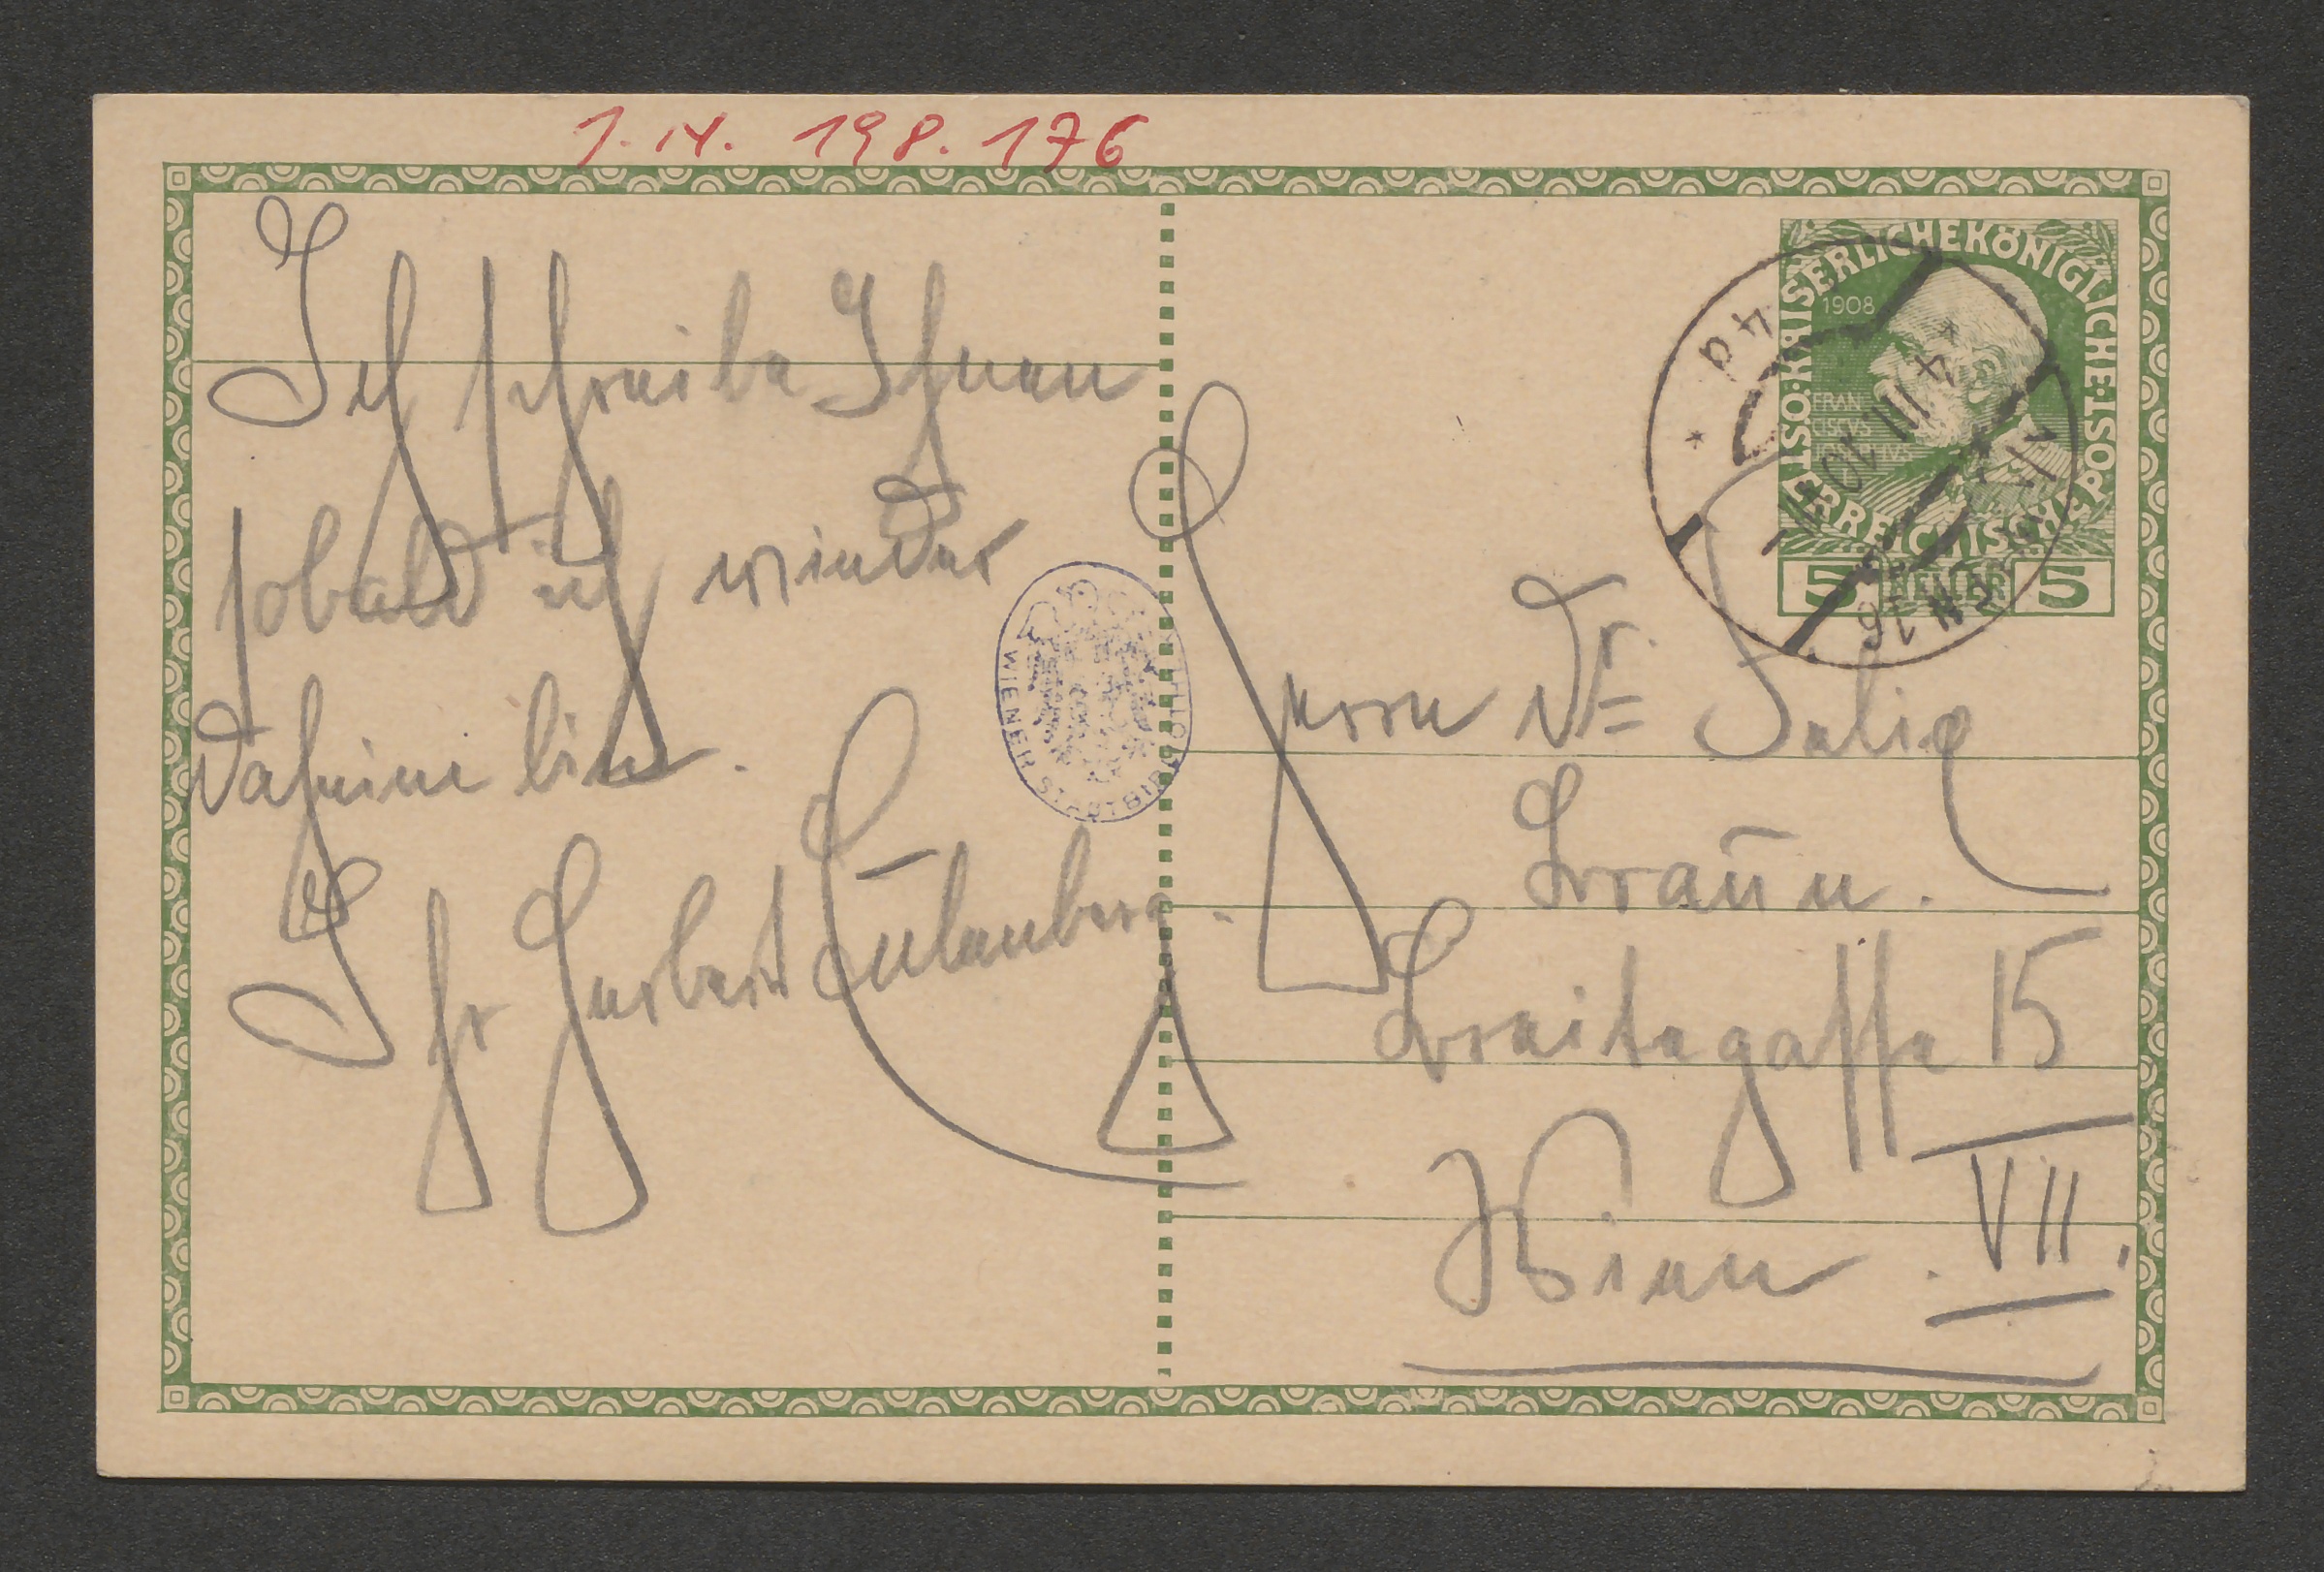 I. N. 198.176
Ich schreibe Ihnen
sobald ich wieder
daheim bin.
Ihr Herbert Eulenberg.
Herrn Dr. Felix
Braun.
Breitegasse 15
Wien. VII.
KAISERLICHE KÖNIGLICHE POST
1908
FRAN
CISCVS
5 HELLER 5
4 III 10
WIEN
WIENER STADTBIBLIOTHEK